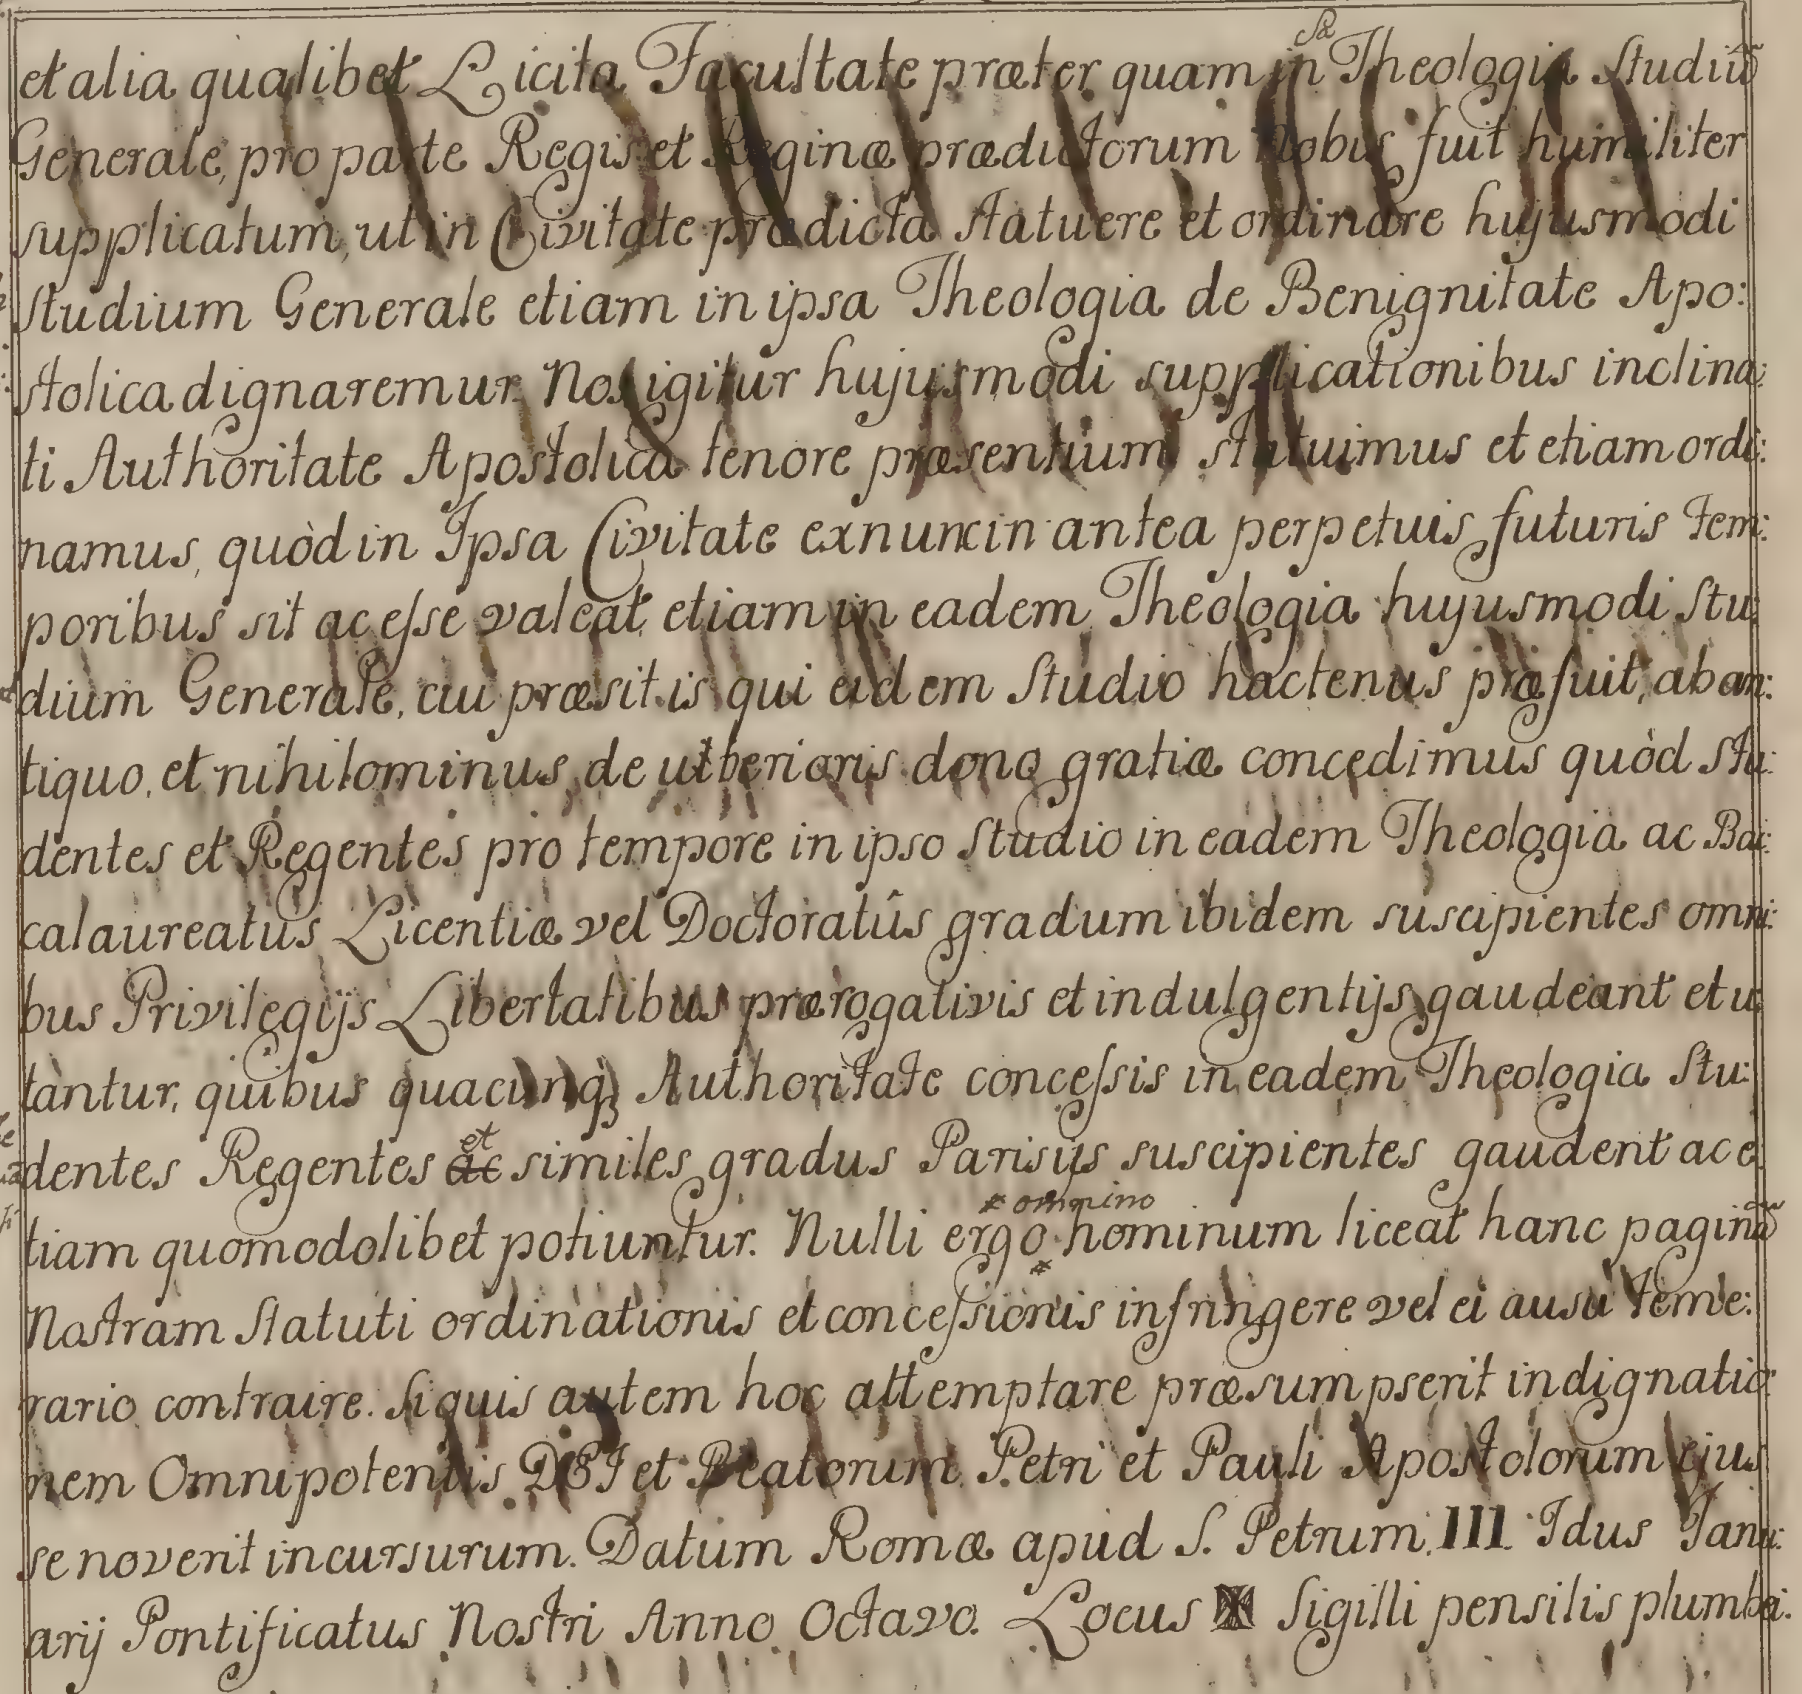 et alia qualibet Licita Facultate præter quam in Theologia Studiũ
Generale, pro parte Regis et Reginæ prædictorum Nobis fuit humiliter
supplicatum, ut in Civitate prædicta statuere et ordinare hujusmodi
Studium Generale etiam in ipsa Theologia de Benignitate Apo:
stolica dignaremur. Nos igitur hujusmodi supplicationibus inclina:
ti Authoritate Apostolica tenore præsentium statuimus et etiam ordi:
namus, quòd in Ipsa Civitate ex nunc in antea perpetuis futuris tem:
poribus sit ac esse valeat, etiam in eadem Theologia hujusmodi Stu:
dium Generale, cui præsit is qui eidem Studio hactenus præfuit, ab an:
tiquo, et nihilominus, de ulterioris dono gratiæ concedimus quòd Stu:
dentes et Regentes pro tempore in ipso Studio in eadem Theologia ac Bac:
calaureatus Licentiæ vel Doctoratûs gradum ibidem suscipientes omni:
bus Privilegijs Libertatibus prærogativis et indulgentijs gaudeant et u
tantur, quibus quacunq; Authoritate concessis in eadem Theologia Stu:
et
dentes Regentes ac similes gradus Parisijs suscipientes gaudent ac e
* omnino
tiam quomodolibet potiuntur. Nulli ergo * hominum liceat hanc paginã
Nostram Statuti ordinationis et concessionis infringere vel ei ausu teme:
rario contraire. Si quis autem hoc attemptare præsumpserit indignatio:
nem Omnipotentis DEI et Beatorum Petri et Pauli Apostolorum ejus
se noverit incursurum. Datum Romæ apud S. Petrum III. Idus Janu:
arij Pontificatus Nostri Anno Octavo. Locus Sigilli pensilis plumbei.